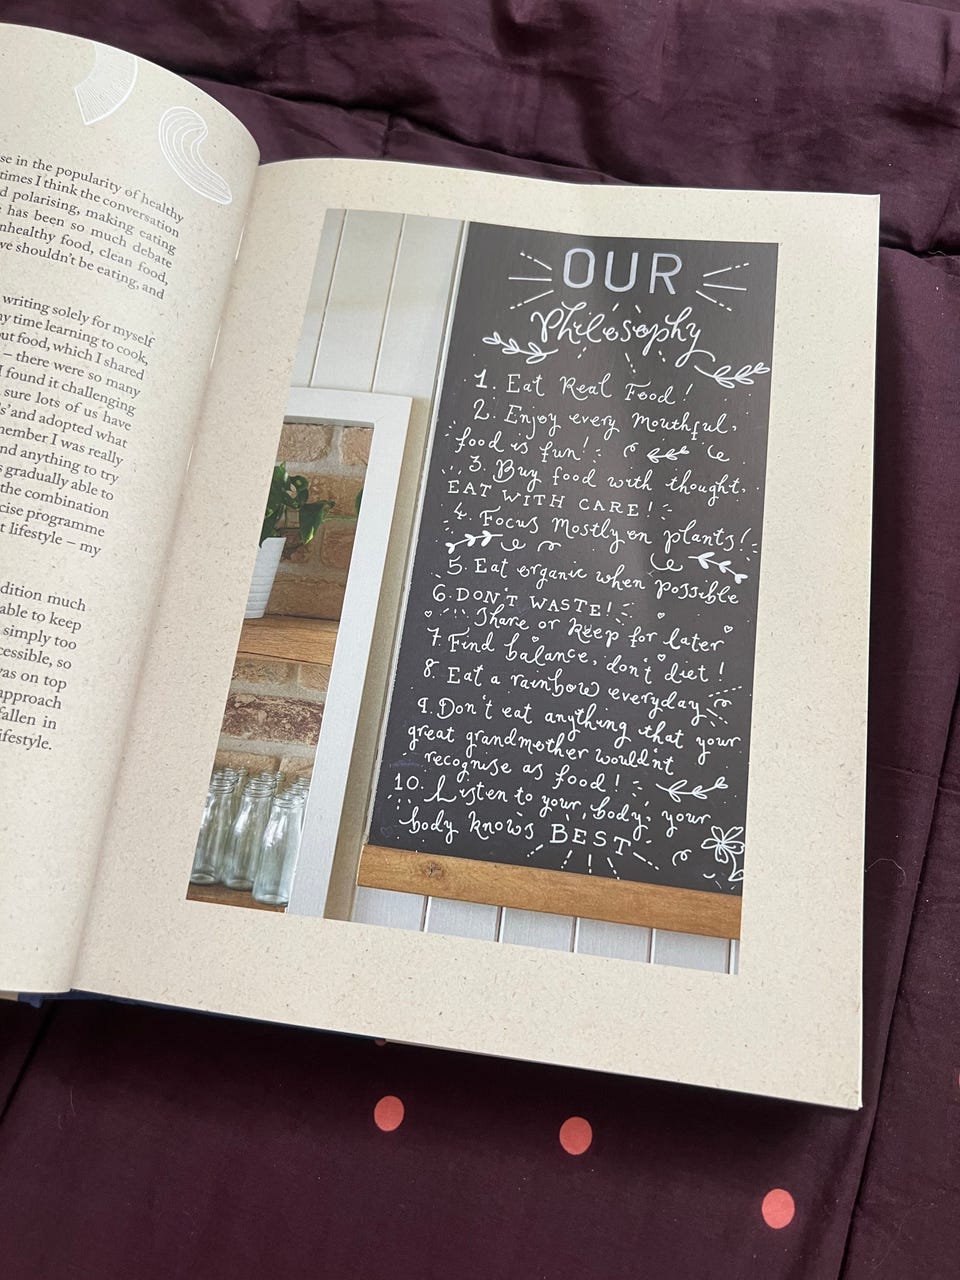 se in the popularity of healthy
times I think the conversation
d polarising, making eating
has been so much debate
nhealthy food, clean food,
we shouldn't be eating, and
writing solely for myself
y time learning to cook,
ut food, which I shared
– there were so many
I found it challenging
sure lots of us have
s' and adopted what
member I was really
nd anything to try
s gradually able to
the combination
cise programme
t lifestyle – my
dition much
able to keep
simply too
cessible, so
was on top
approach
fallen in
ifestyle.
OUR
Philosophy
1. Eat Real Food!
2. Enjoy every Mouthful,
food is fun!
3. Buy food with thought,
EAT WITH CARE!
4. Focus Mostly on plants!
5. Eat organic when possible
6. DON'T WASTE!
Share or keep for later
7. Find balance, don't diet!
8. Eat a rainbow everyday
9. Don't eat anything that your
great grandmother wouldn't
recognise as food!
10. Listen to your body, your
body knows BEST